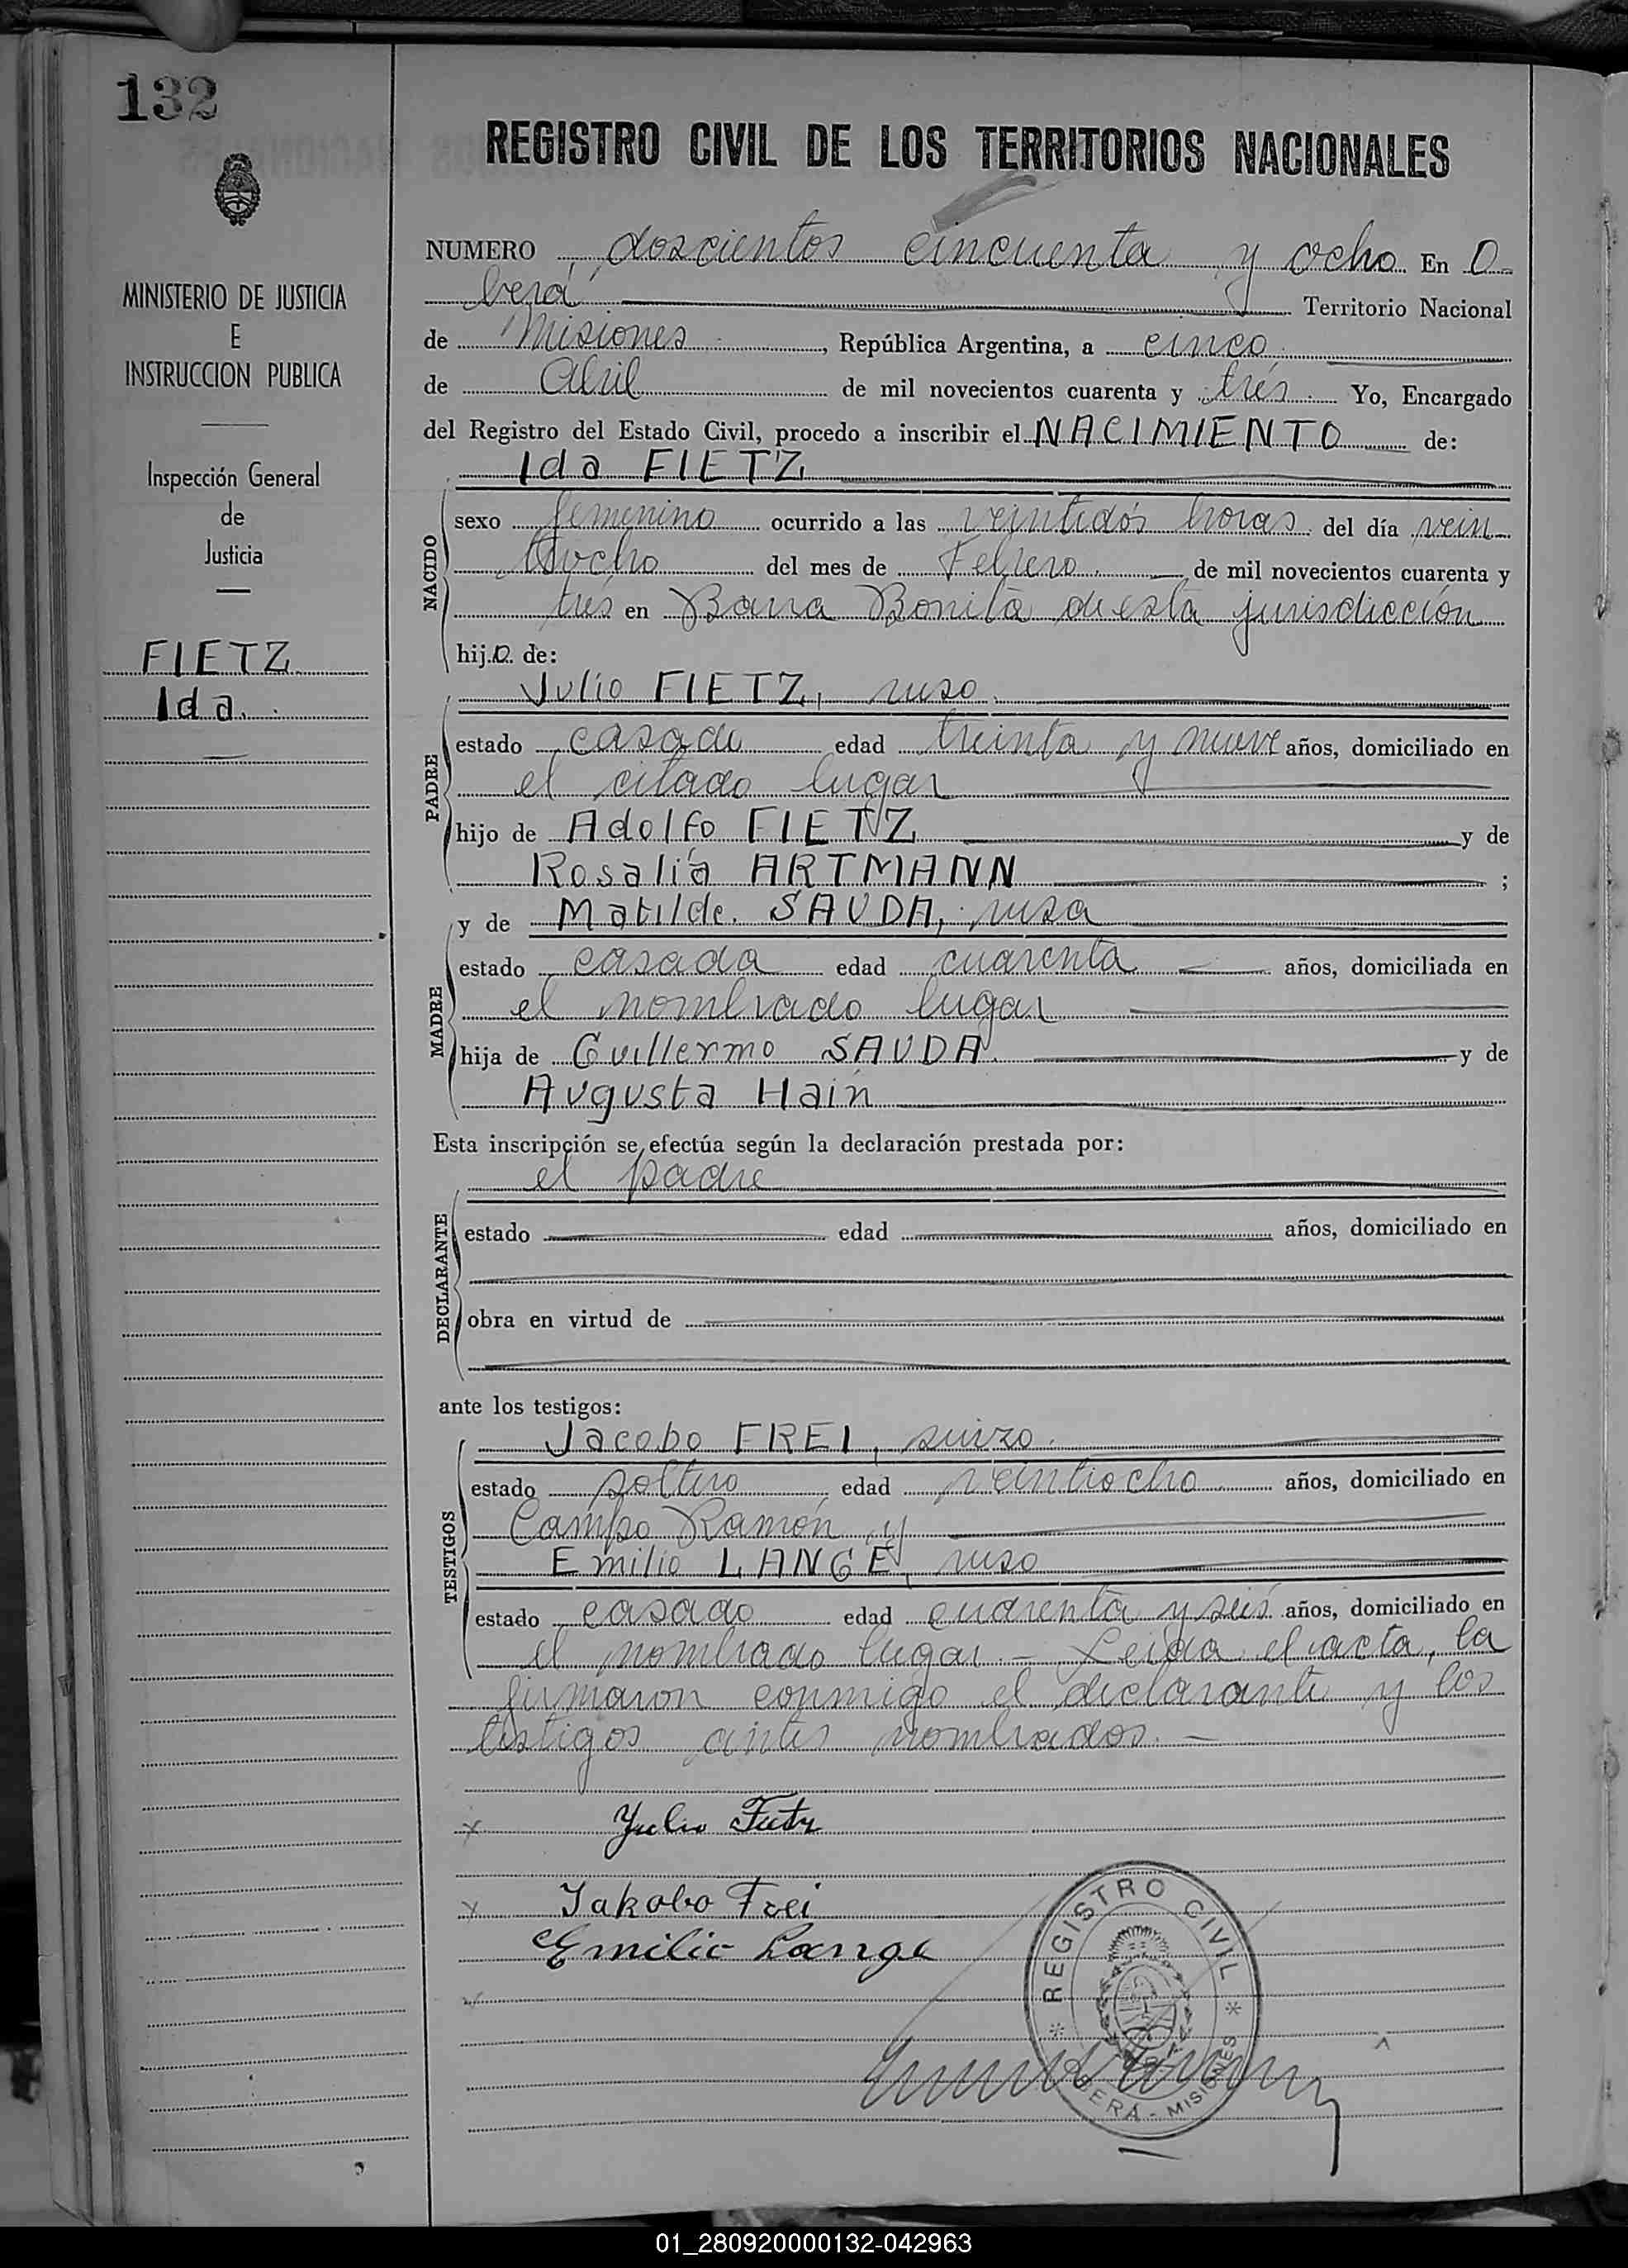 132
REGISTRO CIVIL DE LOS TERRITORIOS NACIONALES
MINISTERIO DE JUSTICIA
E
INSTRUCCION PUBLICA
Inspección General
de
Justicia
FIETZ
Ida.
NUMERO doscientos cincuenta y ocho En O-
berá Territorio Nacional
de Misiones, República Argentina, a cinco
de Abril de mil novecientos cuarenta y tres. Yo, Encargado
del Registro del Estado Civil, procedo a inscribir el NACIMIENTO de:
Ida FIETZ
NACIDO
sexo femenino ocurrido a las veintidós horas del día vein-
tiocho del mes de Febrero de mil novecientos cuarenta y
tres en Barra Bonita de esta jurisdicción
hija de:
Julio FIETZ, ruso.
PADRE
estado casado edad treinta y nueve años, domiciliado en
el citado lugar
hijo de Adolfo FIETZ y de
Rosalía ARTMANN ;
y de Matilde. SAUDA, rusa
MADRE
estado casada edad cuarenta años, domiciliada en
el nombrado lugar
hija de Guillermo SAUDA. y de
Augusta Hain
Esta inscripción se efectúa según la declaración prestada por:
el padre
DECLARANTE
estado edad años, domiciliado en
obra en virtud de
ante los testigos:
Jacobo FREI, suizo.
TESTIGOS
estado soltero edad veintiocho años, domiciliado en
Campo Ramón y
Emilio LANGE, ruso
estado casado edad cuarenta y seis años, domiciliado en
el nombrado lugar.- Leida el acta, la
firmaron conmigo el declarante y los
testigos antes nombrados.-
x Yulio Fietz
x Jakobo Frei
Emilio Lange
REGISTRO CIVIL
OBERÁ - MISIONES
01_280920000132-042963